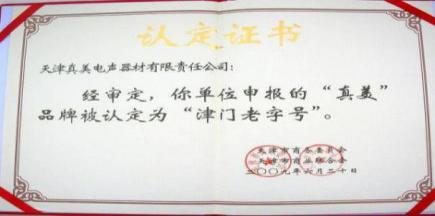 认定证书
天津真美电声器材有限责任公司：
经审定，你单位申报的“真美”
品牌被认定为“津门老字号”。
天津市商务委员会
天津市商业联合会
二〇〇九年六月二十日